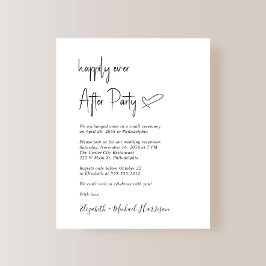 happily ever
After Party
We exchanged vows in a small ceremony
on April 20, 2018 in Philadelphia
Please join us for our wedding reception
Saturday, November 10, 2018 at 7 PM
The Center City Restaurant
222 N Main St, Philadelphia
Regrets only before October 22
to Elizabeth at 555-555-5212
We can't wait to celebrate with you!
With love,
Elizabeth + Michael Harrison